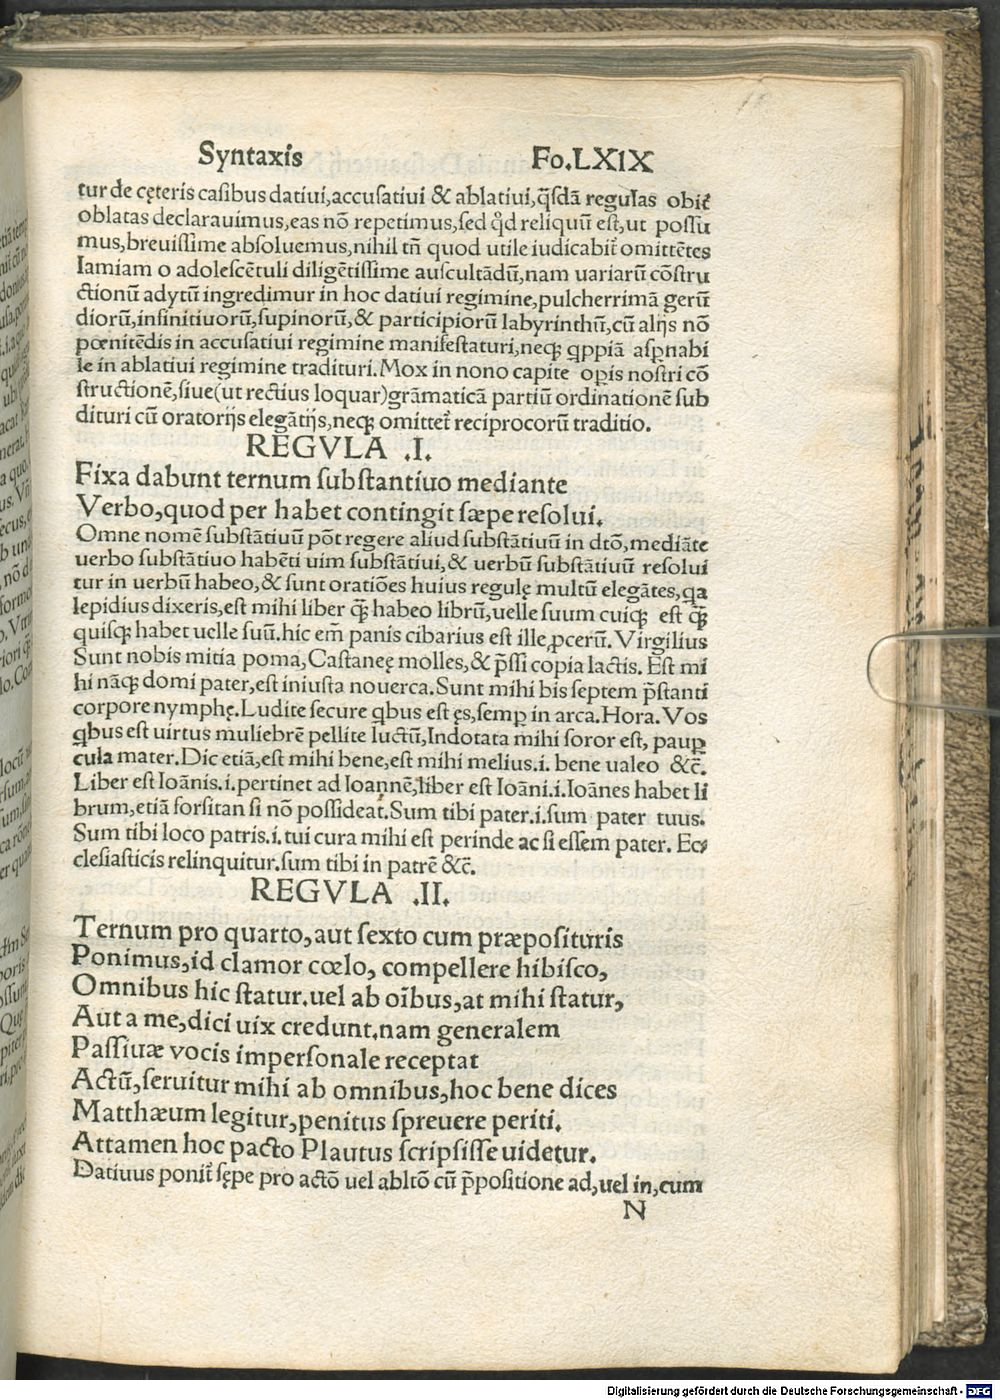 Syntaxis Fo.LXIX
tur de cęteris casibus datiui,accusatiui & ablatiui,q̄sdā regulas obit᷑
oblatas declarauimus,eas nō repetimus,sed qd̓ reliquū est,ut possu
mus,breuissime absoluemus,nihil tn̄ quod utile iudicabit᷑ omittētes
Iamiam o adolescētuli diligētissime auscultādū,nam uariarū cōstru
ctionū adytū ingredimur in hoc datiui regimine,pulcherrimā gerū
diorū,infinitiuorū,supinorū,& participiorū labyrinthū,cū alijs nō
pœnitēdis in accusatiui regimine manifestaturi,neqꝫ ꝓpriā aspnabi
le in ablatiui regimine tradituri.Mox in nono capite oꝑis nostri cō
structionē,siue(ut rectius loquar)grāmaticā partiū ordinationē sub
dituri cū oratorijs elegātijs,neqꝫ omittet᷑ reciprocorū traditio.
REGVLA .I.
Fixa dabunt ternum substantiuo mediante
Verbo,quod per habet contingit sæpe resolui.
Omne nomē substātiuū pōt regere aliud substātiuū in dtō,mediāte
uerbo substātiuo habēti uim substātiui,& uerbū substātiuū resolui
tur in uerbū habeo,& sunt oratiōes huius regulę multū elegātes,qa
lepidius dixeris,est mihi liber q̄ꝫ habeo librū,uelle suum cuiqꝫ est q̄ꝫ
quisqꝫ habet uelle suū.hic em̄ panis cibarius est ille,ꝓcerū.Virgilius
Sunt nobis mitia poma,Castaneę molles,& p̄ssi copia lactis. Est mi
hi nāqꝫ domi pater,est iniusta nouerca.Sunt mihi bis septem p̄stanti
corpore nymphę.Ludite secure qbus est ęs,semꝑ in arca.Hora. Vos
qbus est uirtus muliebrē pellite luctū,Indotata mihi soror est, pauꝑ
cula mater.Dic etiā,est mihi bene,est mihi melius.i. bene ualeo &c̄.
Liber est Ioānis.i.pertinet ad Ioannē,liber est Ioāni.i.Ioānes habet li
brum,etiā forsitan si nō possideat.Sum tibi pater.i.sum pater tuus.
Sum tibi loco patris.i.tui cura mihi est perinde ac si essem pater. Ec
clesiasticis relinquitur.sum tibi in patrē &c̄.
REGVLA .II.
Ternum pro quarto,aut sexto cum præposituris
Ponimus,id clamor cœlo, compellere hibisco,
Omnibus hic statur.uel ab oībus,at mihi statur,
Aut a me,dici uix credunt.nam generalem
Passiuæ vocis impersonale receptat
Actū,seruitur mihi ab omnibus,hoc bene dices
Matthæum legitur,penitus spreuere periti.
Attamen hoc pacto Plautus scripsisse uidetur.
Datiuus ponit᷑ sępe pro actō uel abltō cū p̄positione ad,uel in,cum
N
Digitalisierung gefördert durch die Deutsche Forschungsgemeinschaft - DFG